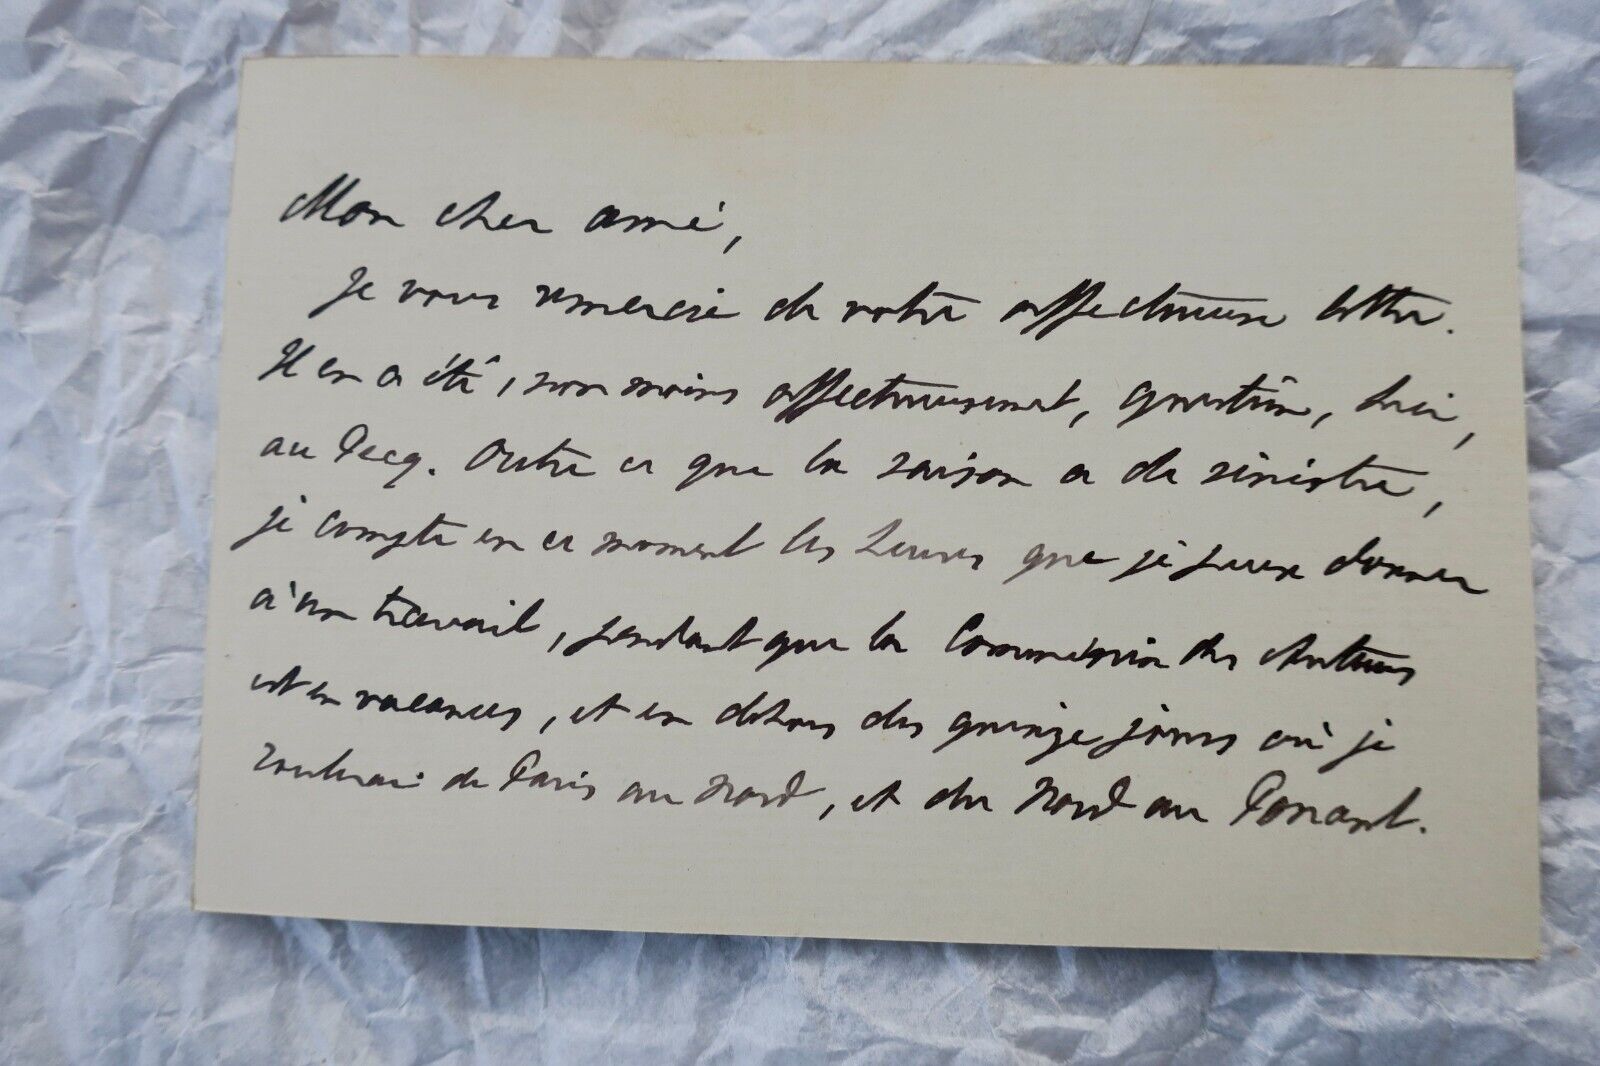 Mon cher ami,
Je vous remercie de votre affectueuse lettre.
Il en a été, non moins affectueusement, question, hier,
au Pecq. Outre ce que la saison a de sinistre,
je compte en ce moment les heures que je peux donner
à un travail, pendant que la Commission des Auteurs
est en vacances, et en dehors des quinze jours où je
de Paris au Nord, et du Nord au Ponant.